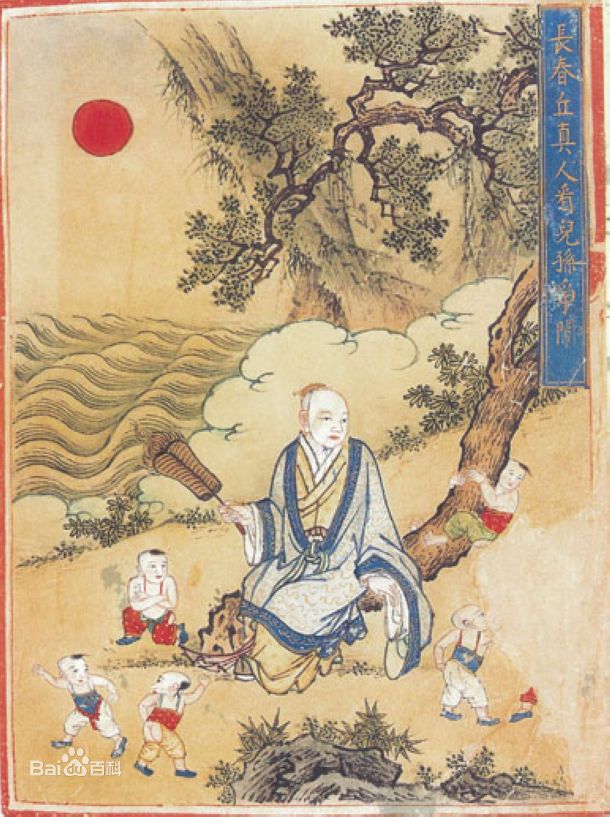 長春丘真人看兒孫爭
Bai du 百科